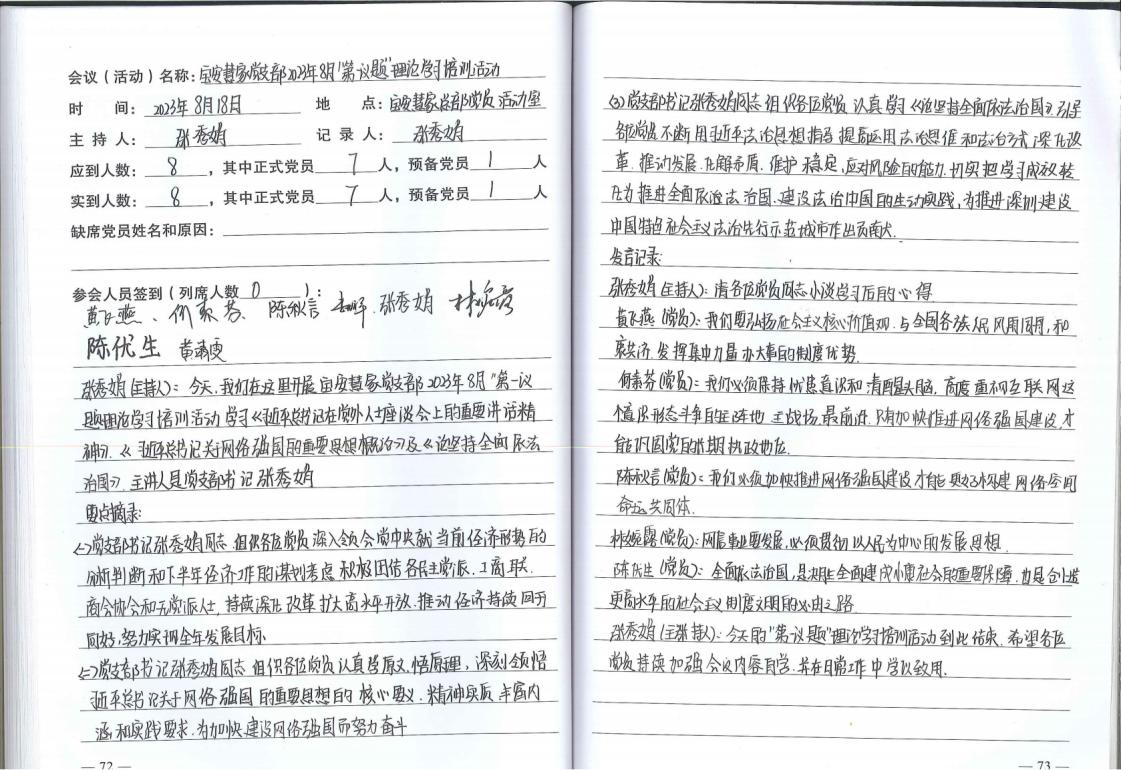 会议（活动）名称：宝安慧家党支部2023年8月"第一议题"理论学习培训活动
时 间：2023年8月18日 地 点：宝安慧家总部党员活动室
主 持 人：张秀娟 记 录 人：张秀娟
应到人数：8，其中正式党员 7 人，预备党员 1 人
实到人数：8，其中正式党员 7 人，预备党员 1 人
缺席党员姓名和原因：
参会人员签到（列席人数 0 ）：
黄飞燕、何素芬、陈秋言 张秀娟
陈优生
张秀娟（主持人）：今天，我们在这里开展宝安慧家党支部2023年8月"第一议
题"理论学习培训活动 学习《习近平总书记在党外人士座谈会上的重要讲话精
神》、《习近平总书记关于网络强国的重要思想概论》及《论坚持全面依法
治国》，主讲人是党支部书记张秀娟
要点摘录：
(一)党支部书记张秀娟同志 组织各位党员深入领会党中央就当前经济形势的
分析判断和下半年经济工作的谋划考点 积极团结各民主党派、工商联、
商会协会和无党派人士，持续深化改革扩大高水平开放、推动经济持续回升
向好，努力实现全年发展目标、
(二)党支部书记张秀娟同志 组织各位党员认真学原文、悟原理，深刻领悟
习近平总书记关于网络强国的重要思想的核心要义、精神实质、丰富内
涵和实践要求、为加快建设网络强国而努力奋斗
— 72 —
(3)党支部书记张秀娟同志 组织各位党员 认真学习《论坚持全面依法治国》，引导
各位党员不断用习近平法治思想指导 提高运用法治思维和法治方式 深化改
革、推动发展、化解矛盾、维护稳定、应对风险的能力，切实把学习成效转
化为推进全面依法治国、建设法治中国的生动实践，为推进深圳建设
中国特色社会主义法治先行示范城市作出贡献．
发言记录：
张秀娟（主持人）：请各位党员同志小谈学习后的心得
黄飞燕（党员）：我们要弘扬社会主义核心价值观、与全国各族人民风雨同舟，和
衷共济，发挥集中力量办大事的制度优势．
何素芬（党员）：我们必须保持忧患意识和清醒头脑，高度重视互联网这
个意识形态斗争的主阵地 主战场、最前沿，只有加快推进网络强国建设，才
能巩固党的长期执政地位．
陈秋言（党员）：我们必须加快推进网络强国建设才能更好构建网络空间
命运共同体．
林婉露（党员）：网信事业要发展，必须贯彻以人民为中心的发展思想．
陈优生（党员）：全面依法治国，是决胜全面建成小康社会的重要保障，也是创造
更高水平的社会主义制度文明的必由之路
张秀娟（主持人）：今天的"第一议题"理论学习培训活动到此结束，希望各位
党员持续加强会议内容自学，并在日常工作中学以致用．
— 73 —